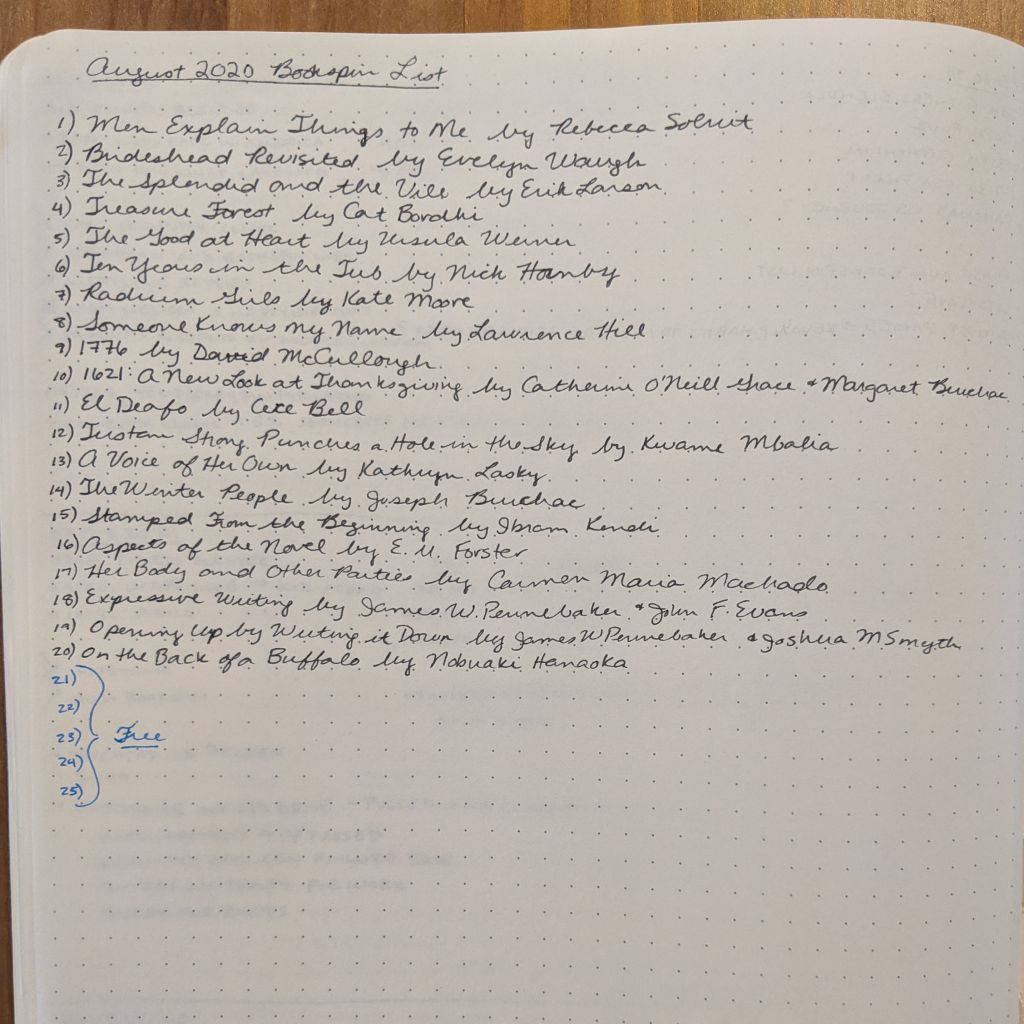 August 2020 Bookspin List
1) Men Explain Things to Me by Rebecca Solnit
2) Brideshead Revisited by Evelyn Waugh
3) The Splendid and the Vile by Erik Larson
4) Treasure Forest by Cat Bordhi
5) The Good at Heart by Ursula Werner
6) Ten Years in the Tub by Nick Hornby
7) Radium Girls by Kate Moore
8) Someone Knows my Name by Lawrence Hill
9) 1776 by David McCullough
10) 1621: A New Look at Thanksgiving by Catherine O'Neill Grace & Margaret Bruchac
11) El Deafo by Cece Bell
12) Tristan Strong Punches a Hole in the Sky by Kwame Mbalia
13) A Voice of Her Own by Kathryn Lasky
14) The Winter People by Joseph Bruchac
15) Stamped From the Beginning by Ibram Kendi
16) Aspects of the Novel by E. M. Forster
17) Her Body and Other Parties by Carmen Maria Machado
18) Expressive Writing by James W. Pennebaker & John F. Evans
19) Opening Up by Writing it Down by James W Pennebaker & Joshua M Smyth
20) On the Back of a Buffalo by Nobuaki Hanaoka
21)
22)
23) Free
24)
25)